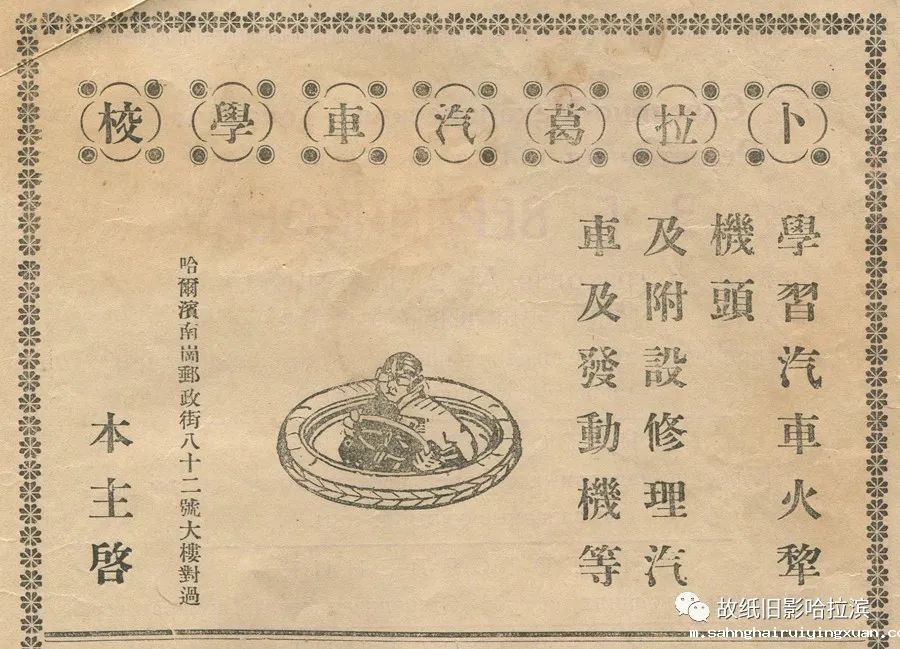 卜拉葛汽車學校
學習汽車火犂
機頭
及附設修理汽
車及發動機等
哈爾濱南崗郵政街八十二號大樓對過
本主啓
故纸旧影哈拉滨
m.sahnghairuiyingxuan.co